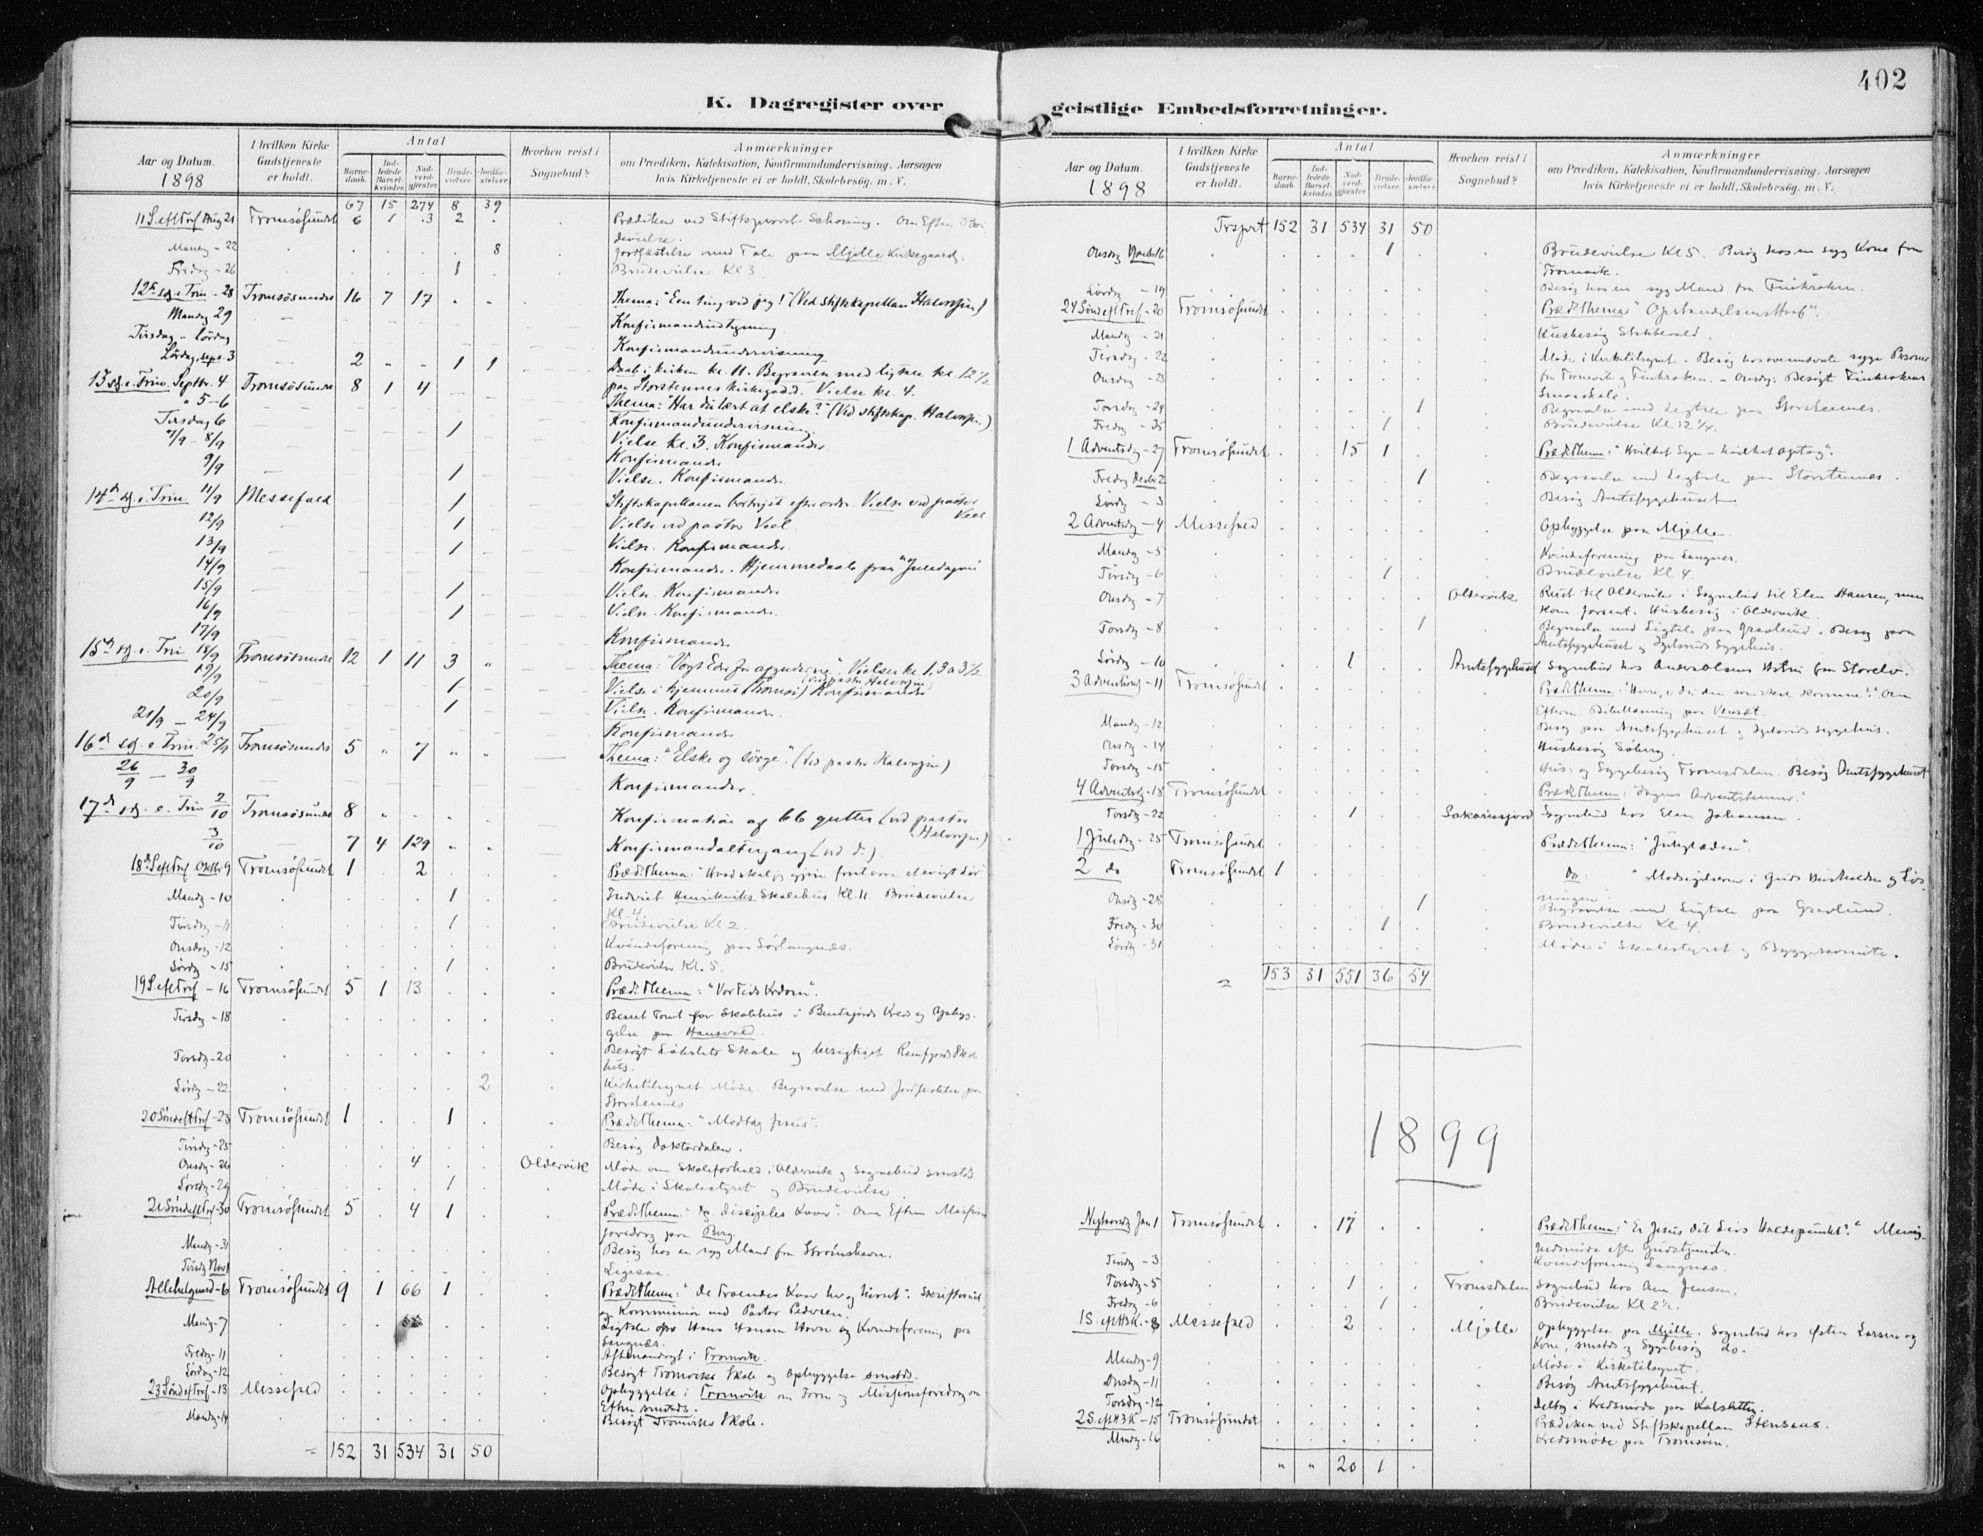 402
K. Dagregister over geistlige Embedsforretninger.
Aar og Datum. 1898
I hvilken Kirke Gudstjeneste er holdt.
Antal
Barnedaab.
Indledede Barselkvinder.
Nadverdgjester
Brudevielser.
Jordfæstelser
Hvorhen reist i Sognebud?
Anmærkninger
om Prædiken, Katekisation, Konfirmandundervisning, Aarsagen
hvis Kirketjeneste ei er holdt, Skolebesøg. m. V.
67 15 274 8 39
11 S. eft Tref Aug 21 Tromsøsundet 6 1 3 2 Prædiken ved Stiftsprovst Schøning. Om Eften
devielse.
Mandg - 22 8 Jordfæstelse med Tale paa Mjelle Kirkegaard.
Fredg - 26 1 Brudevielse Kl 3
12te sg. e. Trin - 28 Tromsøsundet 16 7 17 Thema: "Een ting ved jeg!" (Ved stiftskapellan Halvorsen)
Mandag 29 Konfirmandudskrivning
Tirsdag - Lördag Konfirmandundervisning
Lördag, sept. 3 2 1 1 Daab i kirken kl. 11. Begravelse med ligtale kl. 12½
paa Storstennes kirkegård. Vielse kl. 4.
13 sg. e. Trin. Septbr. 4 Tromsøsundet 8 1 4 Thema: "Har du lært at elske?" (Ved stiftskap. Halvorsen.)
" 5-6 Konfirmandundervisning
Tirsdag 6 1 Vielse kl. 3. Konfirmander
7/9 - 8/9 Konfirmander
9/9 1 Vielse. Konfirmander.
14de sg. e. Trin. 11/9 Messefald 1 Stiftskapellanen bortreist efter ordre. Vielse ved pastor
Veel
12/9 1 Vielse ved pastor Veel.
13/9 1 Vielse. Konfirmander.
14/9 Konfirmander. Hjemmedaab fra "Juledagen"
15/9 1 Vielse. Konfirmander
16/9 1 Vielse. Konfirmander.
17/9 Konfirmander
15de sg. e. Trin 18/9 Tromsøsundet 12 1 11 3 Thema: "Vogt Eder for afguderne". Vielser kl. 1, 3 o 3½
(Ved pastor Halvorsen)
19/9 1 Vielse i hjemmet (Tromsø) Konfirmander
20/9 1 Vielse. Konfirmander.
21/9 - 24/9 Konfirmander
16de sg. e. Trin. 25/9 Tromsøsundet 5 7 Thema: "Elske og sörge". (Ved pastor Halvorsen)
26/9 - 30/9 Konfirmander.
17de sg. e. Trin 2/10 Tromsøsundet 8 Konfirmation af 66 gutter (ved pastor
Halvorsen)
3/10 7 4 129 Konfirmandaltergang (ved do.)
18de S eft Tref Oktbr 9 Tromsøsundet 1 2 Præd. Thema: "Hvad skal jeg gjøre for at arve et evigt Liv
Mandg - 10 1 Indviet Henrikviks Skolehus Kl. 11. Brudevielse
Kl. 4.
Tirsdg - 11 1 Brudevielse Kl 2.
Onsdg - 12 Kvindeforening paa Sørlangnæs.
Lørdg - 15 1 Brudevielse Kl. 5.
19 S. eft Tref - 16 Tromsøsundet 5 1 13 Præd. Thema: "Vor Tids Ydom".
Tirsdg - 18 Beseet Tomt for Skolehus i Bentsjords Kreds og Opbyg-
gelse paa Hansvold.
Torsdg - 20 Besøgt Løkslets Skole og besigtiget Ramfjords Skol
hus.
Lørdg - 22 2 Kirketilsynet Møde. Begravelse med Jordfæstelse paa
Storstennes
20 Sønd eft Tref - 23 Tromsøsundet 1 1 Præd. Thema: "Modtag Jesus".
Tirsdg - 25 Besøg Doktordalen.
Onsdg - 26 4 Oldervik Møde om Skoleforhold i Oldervik og Sognebud smstds.
Lørdg - 29 1 Møde i Skolestyret og Brudevielse
21 Sønd eft Tref - 30 Tromsøsundet 5 4 1 Præd. Thema: Disciples Kaar". Om Eften Missions
foredrag paa Berg.
Mandg - 31 Besøg hos en syg Mand fra Strømshavn.
Tirsdg Nov 1 Ligesaa.
Allehelgensd - 6 Tromsøsundet 9 1 66 1 Præd. Thema: "De Troendes Kaar her og hisset". Skriftemaal
og Kommunion ved Pastor Pedersen.
Mandg - 7 Ligtale over Hans Hansen Havn og Kvindeforening paa
Langnæs.
Fredg - 11 Aftenandagt i Tromvik.
Lørdag - 12 Besøgt Tromviks Skole og Opbyggelse smstds.
23 Sønd eft Tref - 13 Messefald Opbyggelse i Tromvik om Form og Missionsforedrag om
Eftm smstds.
Mandg - 14 Besøgt Tromviks Skole.
= 152 31 534 31 50
Aar og Datum. 1898
I hvilken Kirke Gudstjeneste er holdt.
Antal
Barnedaab.
Indledede Barselkvinder
Nadverdgjester
Brudevielser.
Jordfæstelser
Hvorhen reist i Sognebud?
Anmærkninger
om Prædiken, Katekisation, Konfirmandundervisning, Aarsagen
hvis Kirketjeneste ei er holdt, Skolebesøg. m. V.
Trsprt 152 31 534 31 50
Onsdg Novbr 16 1 Brudevielse Kl 5. Besøg hos en syg Kone fra
Tromvik.
Lørdg - 19 Besøg hos en syg Mand fra Finkroken.
24 Sønd eft Tref - 20 Tromsøsundet Præd. Thema "Opstandelsens Haab".
Mandg - 21 Husbesøg Stakkevold.
Tirsdg - 22 Møde i Kirketilsynet. Besøg hos ovennævnte syge Personer
Onsdg - 23 fra Tromvik og Finkroken. - Onsdg: Besøgt Finkrokens
Smaaskole.
Torsdg - 24 1 Begravelse med Ligtale paa Storstennes.
Fredg - 25 1 Brudevielse Kl 12¼.
1 Adventsdg - 27 Tromsøsundet 15 1 Præd. Thema: "Hvilket Syn - hvilket Optog".
Fredag Decbr 2 1 Begravelse med Ligtale paa Storstennes.
Lørdg - 3 Besøg Amtssygehuset.
2 Adventsdg - 4 Messefald Opbyggelse paa Mjelle.
Mandg - 5 Kvindeforening paa Langnes.
Tirsdg - 6 1 Brudevielse Kl 4.
Onsdg - 7 Oldervik Reist til Oldervik i Sognebud til Elen Hansen, men
kom forsent. Husbesøg i Oldervik.
Torsdg - 8 1 Begravelse med Ligtale paa Gravlund. Besøg paa
Amtssygehuset og Sygehus.
Lørdg - 10 1 Amtssygehuset Sognebud hos Anders Olsens Hstru fra Storelv.
3 Adventsdg - 11 Tromsøsundet Præd. Thema: "Herre, er du den som skal komme?" Om
Eftern. Bibellæsning paa
Mandg - 12 Besøg paa Amtssygehuset og Sygehus.
Onsdg - 14 Husbesøg Solberg.
Torsdg - 15 Hus- og Sygebesøg Tromsdalen. Besøg Amtssygehuset
4 Adventsdg - 18 Tromsøsundet Præd. Thema: "Dagens Adventstoner."
Torsdg - 22 1 Sakariasjord Sognebud hos Elen Johansen.
1 Juledg - 25 Tromsøsundet Præd. Thema: "Juleglæden".
2 do Tromsøsundet 1 Do: "Modsigelsen i Guds Husholdn og Løs-
ningen
Onsdg - 28 1 Begravelse med Ligtale paa Gravlund.
Fredg - 30 1 Brudevielse Kl 4.
Lørdg - 31 Møde i Skolestyret og Byggekomite.
= 153 31 551 36 54
1899
Nytaarsdg Jan 1 Tromsøsundet 17 Præd. Thema: "Er Jesus dit Livs Holdepunkt?" Menig-
hedsmøde efter Gudstjenesten.
Tirsdg - 3 Kvindeforening Langnæs.
Torsdg - 5 1 Tromsdalen Sognebud hos Ane Jensen.
Fredg - 6 1 Brudevielse Kl 2½.
1 S. eft H3K. - 8 Messefald 2 Mjelle Opbyggelse paa Mjelle. Sognebud hos Østen Larsen og
Kone, smstds og Sygebesøg do-
Mandg - 9 Møde i Kirketilsynet.
Onsdg - 11 Besøg Amtssygehuset.
Torsdg - 12 Deltog i Kredsmøde paa Kalsletten.
2 S. eft H3K - 15 Tromsøsundet Prædiken ved Stiftskapellan Stensaas.
Mandg - 16 Kredsmøde paa Tromsøen.
" " 20 1